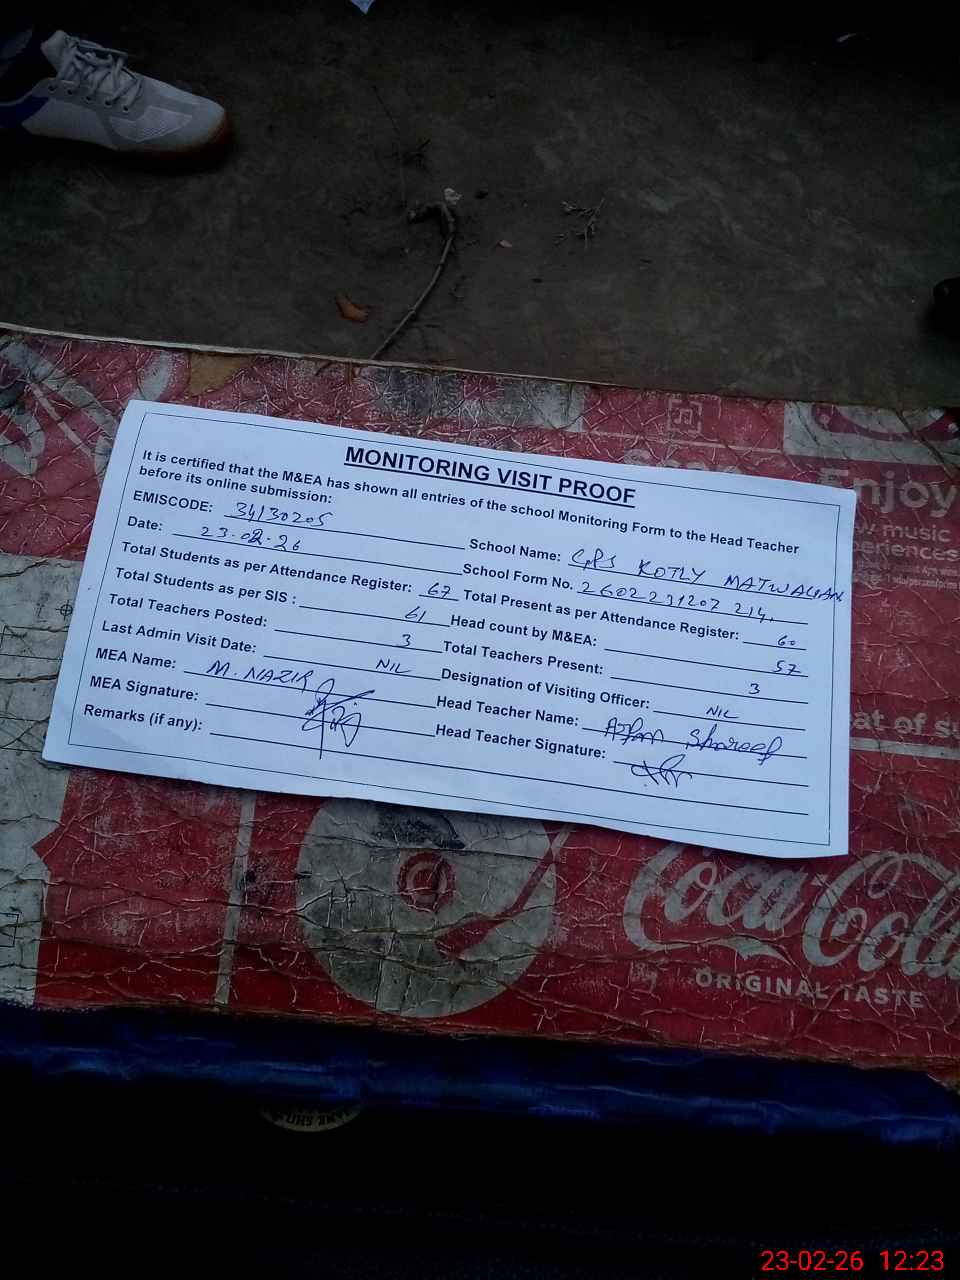 MONITORING VISIT PROOF
It is certified that the M&EA has shown all entries of the school Monitoring Form to the Head Teacher
before its online submission:
EMISCODE: 34130205 School Name: GPS KOTLY MATWALIAN
Date: 23.02.26 School Form No. 2602231207 214
Total Students as per Attendance Register: 67 Total Present as per Attendance Register: 60
Total Students as per SIS : 61 Head count by M&EA: 57
Total Teachers Posted: 3 Total Teachers Present: 3
Last Admin Visit Date: NIL Designation of Visiting Officer: NIL
MEA Name: M. NAZIR Head Teacher Name: Shareef
MEA Signature: Head Teacher Signature:
Remarks (if any):
Enjoy
music
periences
at of su
Coca-Cola
ORIGINAL TASTE
23-02-26 12:23